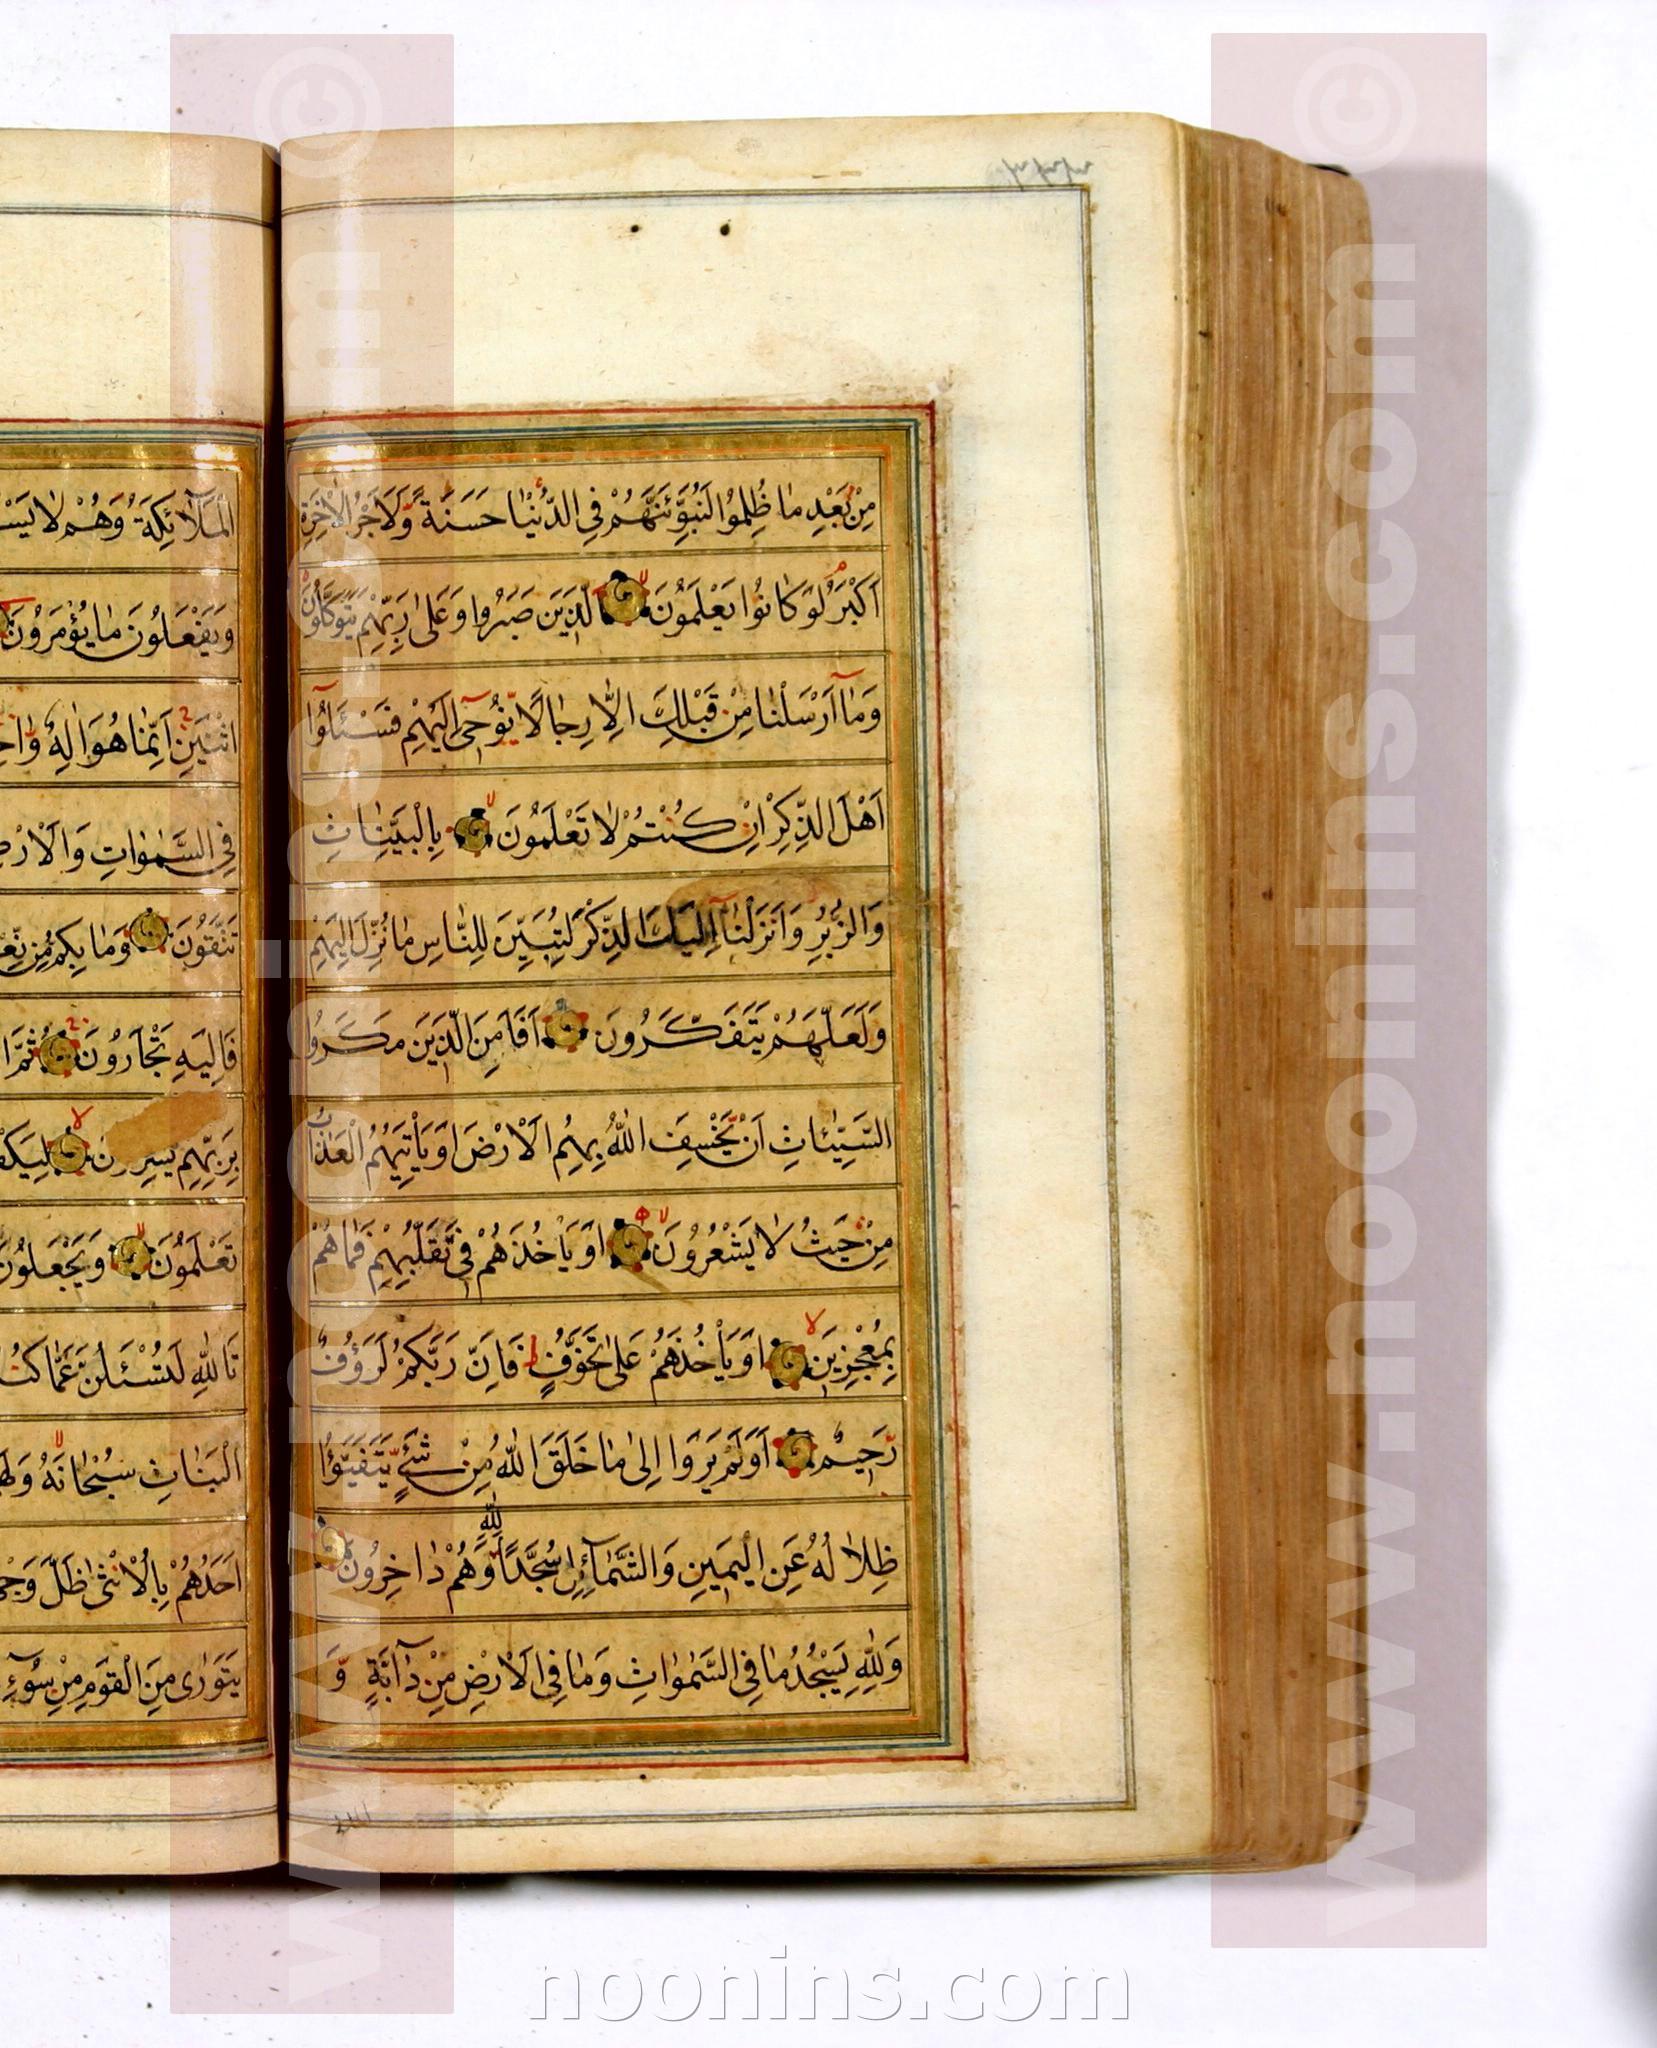 مِنْ بَعْدِ مَا ظُلِمُوا لَنُبَوِّئَنَّهُمْ فِي الدُّنْيَا حَسَنَةً وَلَأَجْرُ الْآخِرَةِ
أَكْبَرُ لَوْ كَانُوا يَعْلَمُونَ الَّذِينَ صَبَرُوا وَعَلَى رَبِّهِمْ يَتَوَكَّلُونَ
وَمَا أَرْسَلْنَا مِنْ قَبْلِكَ إِلَّا رِجَالًا يُوحَى إِلَيْهِمْ فَسْـَٔلُوا
أَهْلَ الذِّكْرِ إِنْ كُنْتُمْ لَا تَعْلَمُونَ بِالْبَيِّنَاتِ
وَالزُّبُرِ وَأَنْزَلْنَا إِلَيْكَ الذِّكْرَ لِتُبَيِّنَ لِلنَّاسِ مَا نُزِّلَ إِلَيْهِمْ
وَلَعَلَّهُمْ يَتَفَكَّرُونَ أَفَأَمِنَ الَّذِينَ مَكَرُوا
السَّيِّئَاتِ أَنْ يَخْسِفَ اللَّهُ بِهِمُ الْأَرْضَ أَوْ يَأْتِيَهُمُ الْعَذَابُ
مِنْ حَيْثُ لَا يَشْعُرُونَ أَوْ يَأْخُذَهُمْ فِي تَقَلُّبِهِمْ فَمَا هُمْ
بِمُعْجِزِينَ أَوْ يَأْخُذَهُمْ عَلَى تَخَوُّفٍ فَإِنَّ رَبَّكُمْ لَرَؤُفٌ
رَحِيمٌ أَوَلَمْ يَرَوْا إِلَى مَا خَلَقَ اللَّهُ مِنْ شَيْءٍ يَتَفَيَّؤُا
ظِلَالُهُ عَنِ الْيَمِينِ وَالشَّمَائِلِ سُجَّدًا لِلَّهِ وَهُمْ دَاخِرُونَ
وَلِلَّهِ يَسْجُدُ مَا فِي السَّمَوَاتِ وَمَا فِي الْأَرْضِ مِنْ دَابَّةٍ وَ
الْمَلَائِكَةُ وَهُمْ لَا
وَيَفْعَلُونَ مَا يُؤْمَرُونَ
اثْنَيْنِ إِنَّمَا هُوَ إِلَهٌ
فِي السَّمَوَاتِ وَالْأَرْضِ
تَتَّقُونَ وَمَا بِكُمْ مِنْ
فَإِلَيْهِ تَجْأَرُونَ ثُمَّ
بِرَبِّهِمْ يُشْرِكُونَ
تَعْلَمُونَ وَيَجْعَلُونَ
تَاللَّهِ لَتُسْئَلُنَّ عَمَّا
الْبَنَاتِ سُبْحَانَهُ
أَحَدُهُمْ بِالْأُنْثَى ظَلَّ
يَتَوَارَى مِنَ الْقَوْمِ مِنْ سُوءِ
www.noonins.com ©
www.noonins.com ©
noonins.com